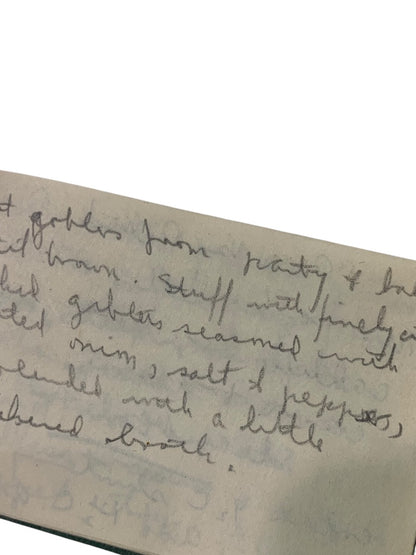 t goblers from pastry & bak
til brown. Stuff with finely
goblers seasoned with
onion, salt & peppers,
blended with a little
broth.